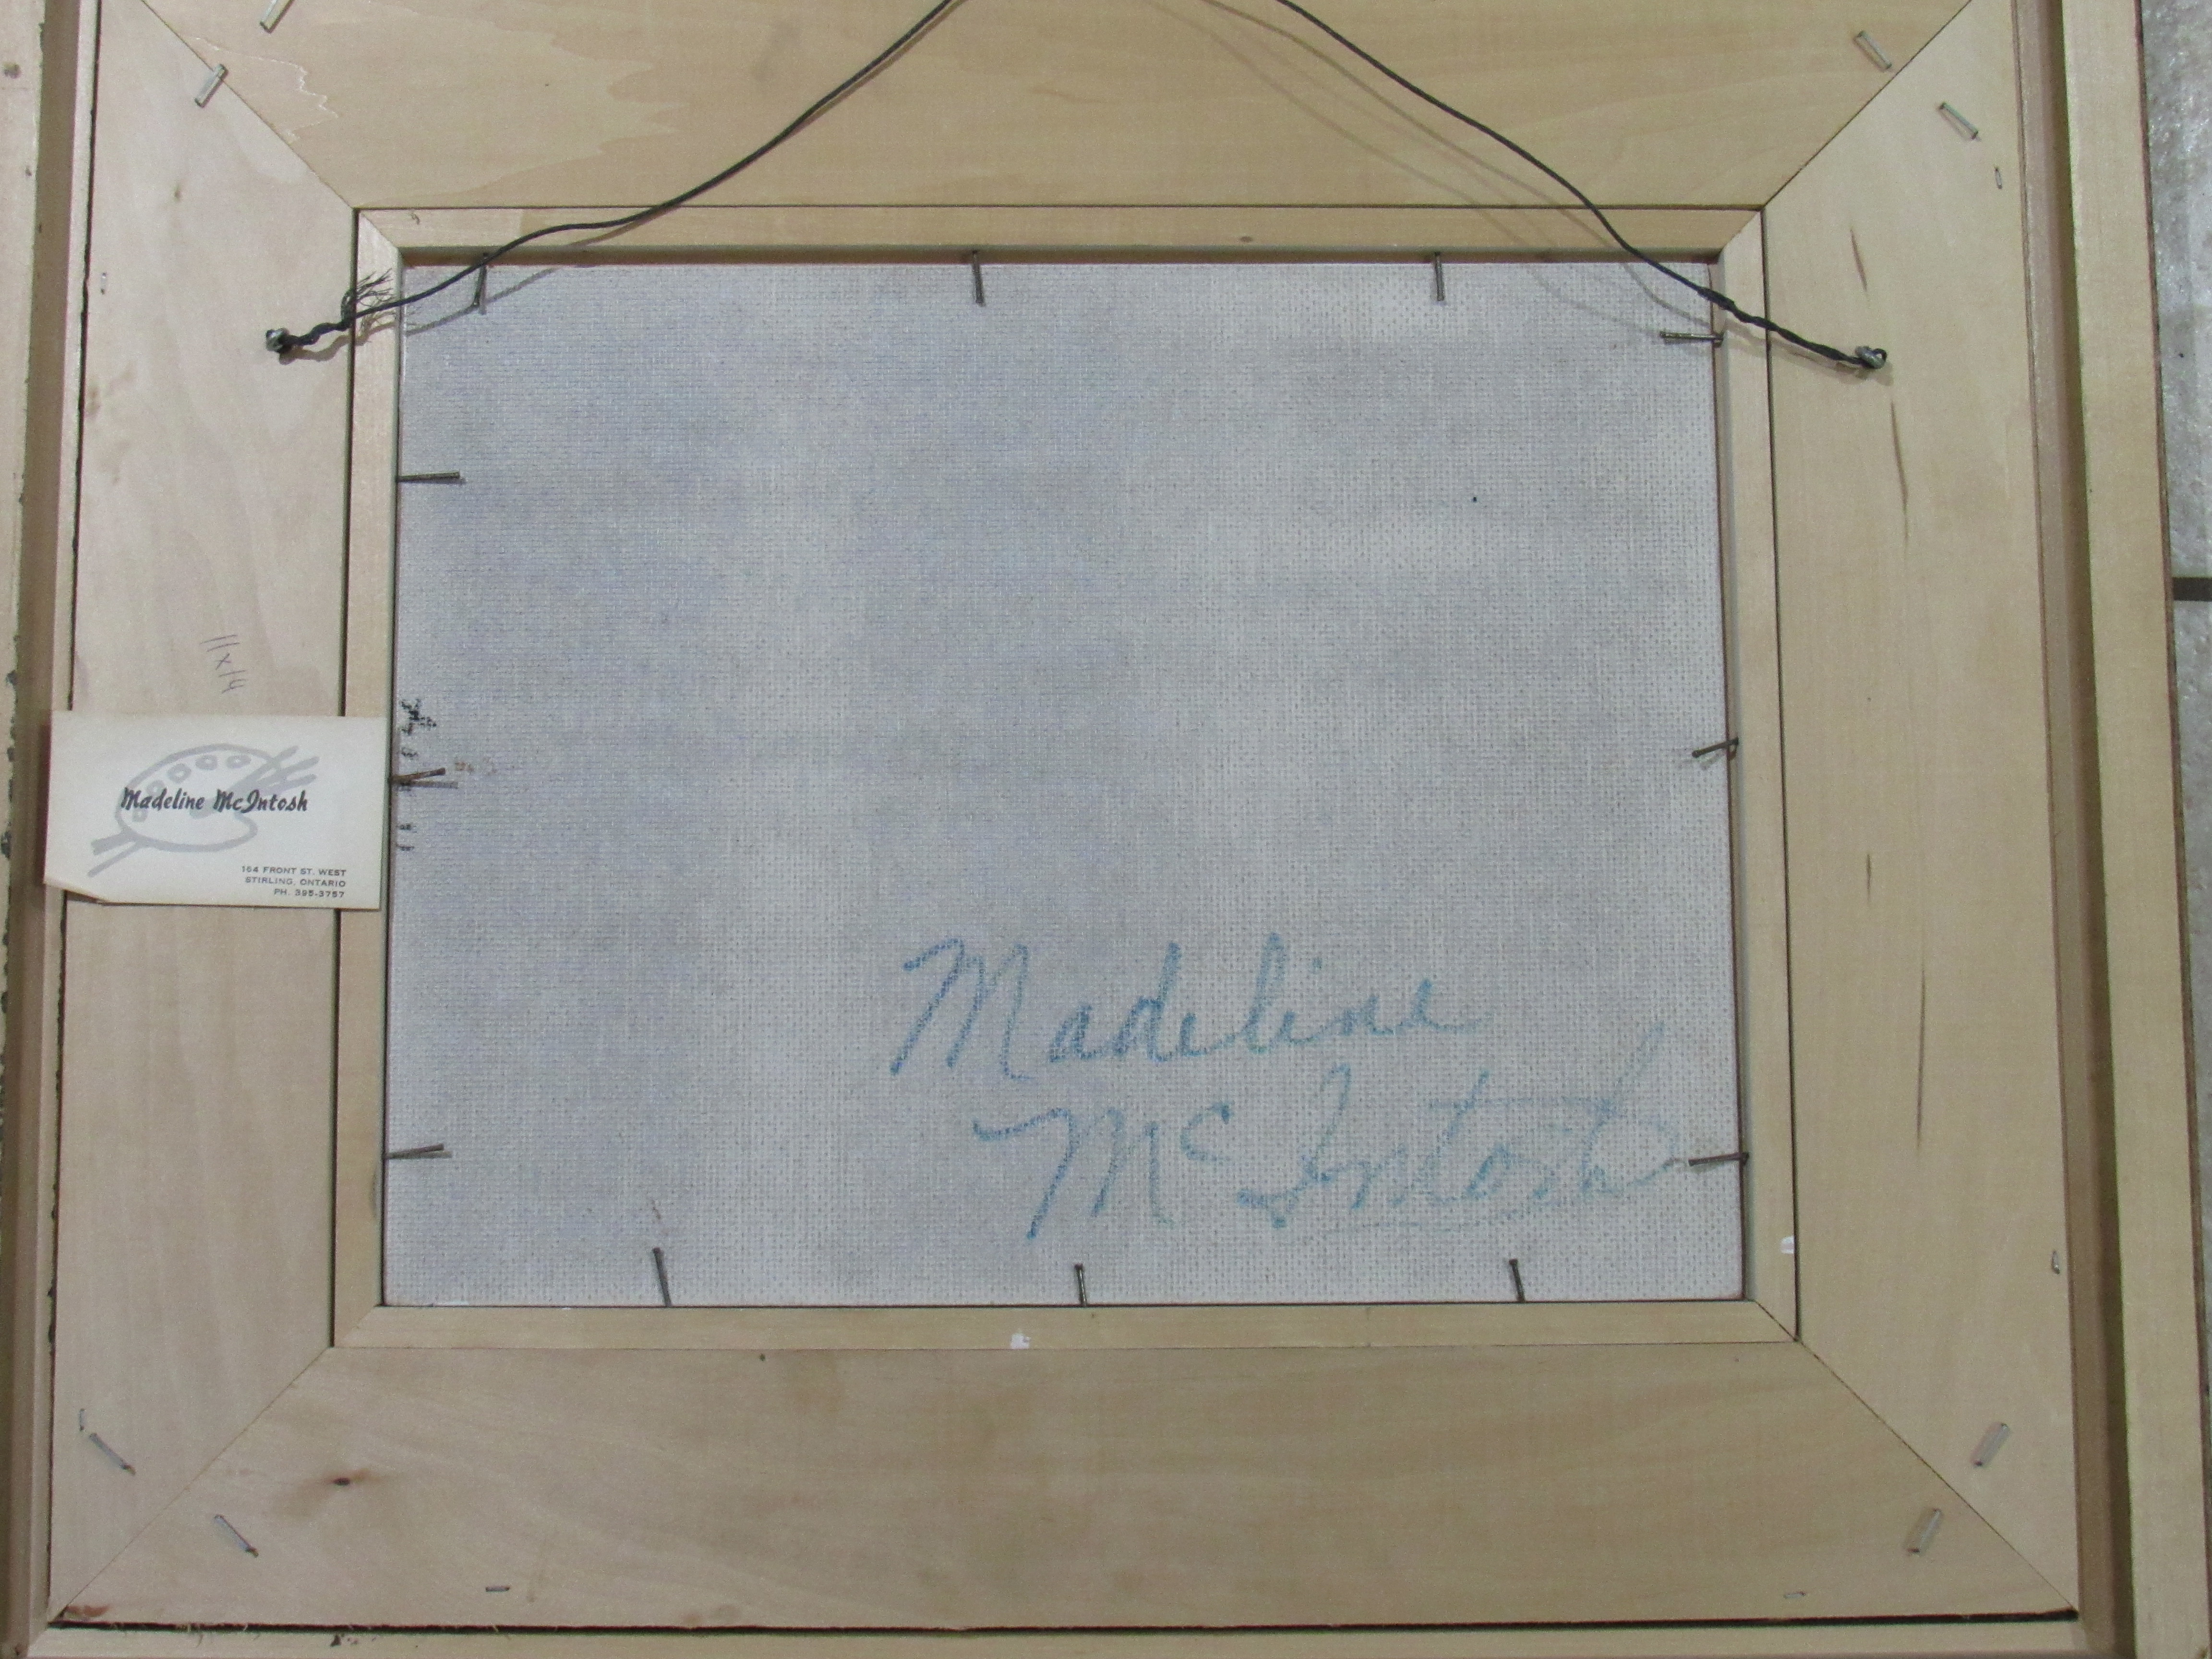 11x14
Madeline McIntosh
164 FRONT ST. WEST
STIRLING, ONTARIO
PH. 395-3757
Madeline
McIntosh